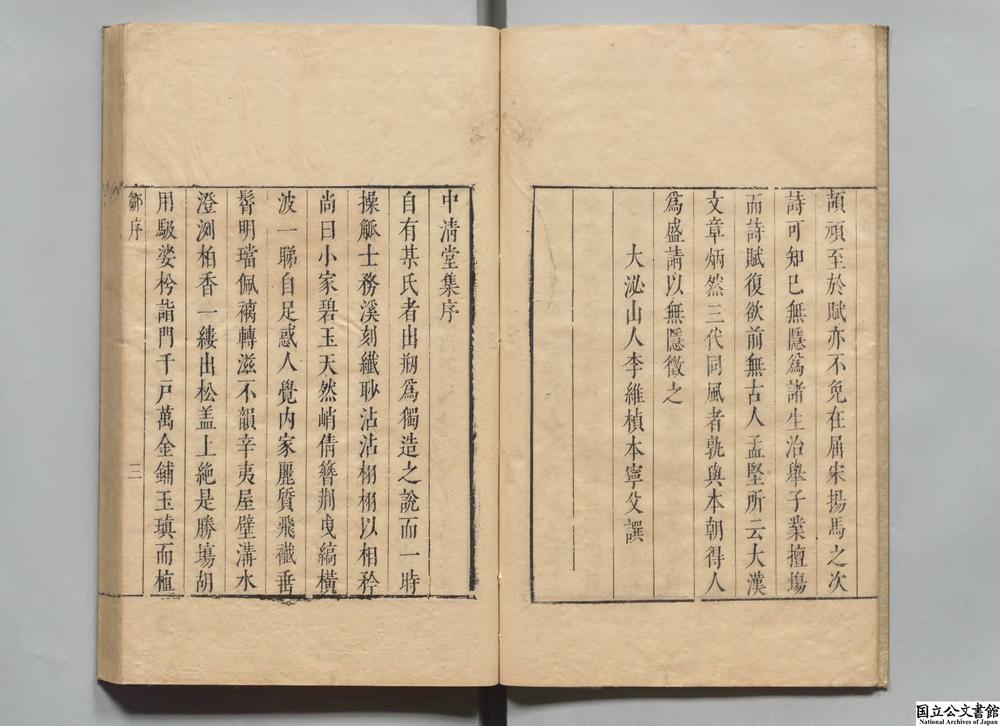 頡頏至於賦亦不免在屈宋揚馬之次
詩可知已無隱為諸生治舉子業擅塲
而詩賦復欲前無古人孟堅所云大漢
文章炳然三代同風者孰與本朝得人
為盛請以無隱徵之
大泌山人李維楨本寧父譔
中清堂集序
自有某氏者出剏為獨造之說而一時
操觚士務溪刻纖眇沾沾栩栩以相矜
尚曰小家碧玉天然峭倩簪荆曳縞橫
波一睇自足惑人覺內家麗質飛襳垂
髾明璫佩褵轉滋不韻辛夷屋壁溝水
澄洌柏香一縷出松盖上絶是勝塲胡
用馺娑枍詣門千戶萬金鋪玉瑱而植
鄒序
三
国立公文書館
National Archives of Japan